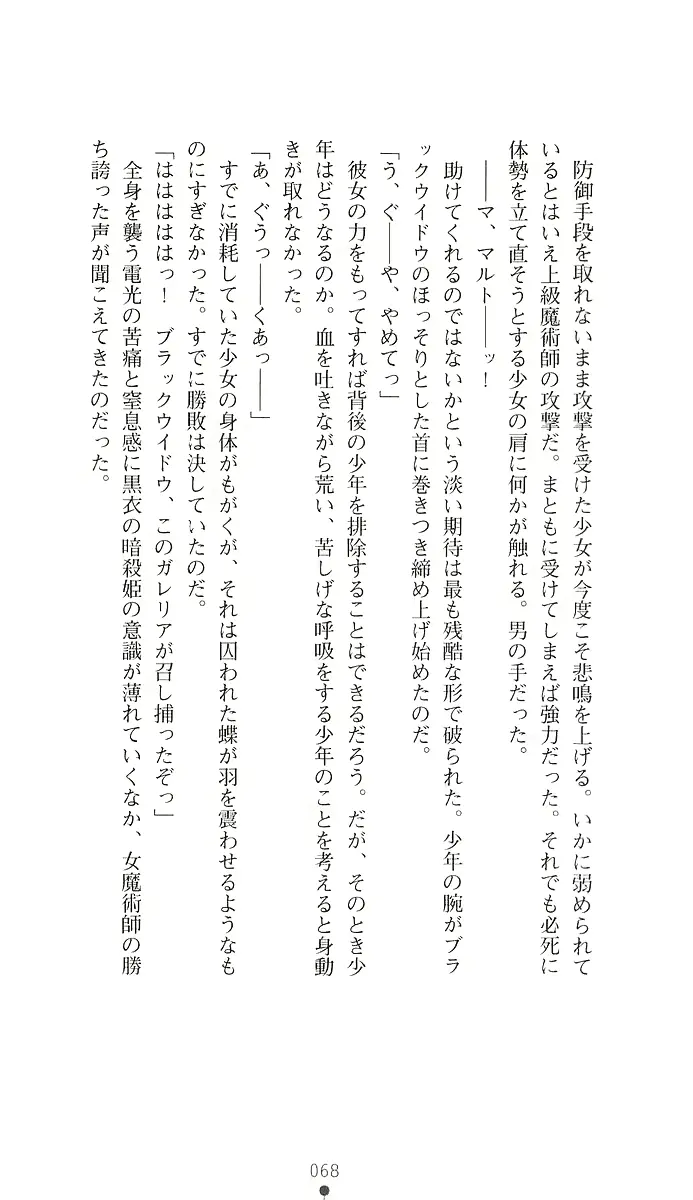 防御手段を取れないまま攻撃を受けた少女が今度こそ悲鳴を上げる。いかに弱められて
いるとはいえ上級魔術師の攻撃だ。まともに受けてしまえば強力だった。それでも必死に
体勢を立て直そうとする少女の肩に何かが触れる。男の手だった。
――マ、マルト――ッ！
助けてくれるのではないかという淡い期待は最も残酷な形で破られた。少年の腕がブラ
ックウイドウのほっそりとした首に巻きつき締め上げ始めたのだ。
「う、ぐ――や、やめてっ」
彼女の力をもってすれば背後の少年を排除することはできるだろう。だが、そのとき少
年はどうなるのか。血を吐きながら荒い、苦しげな呼吸をする少年のことを考えると身動
きが取れなかった。
「あ、ぐうっ――くあっ――」
すでに消耗していた少女の身体がもがくが、それは囚われた蝶が羽を震わせるようなも
のにすぎなかった。すでに勝敗は決していたのだ。
「はははははっ！　ブラックウイドウ、このガレリアが召し捕ったぞっ」
全身を襲う電光の苦痛と窒息感に黒衣の暗殺姫の意識が薄れていくなか、女魔術師の勝
ち誇った声が聞こえてきたのだった。
068